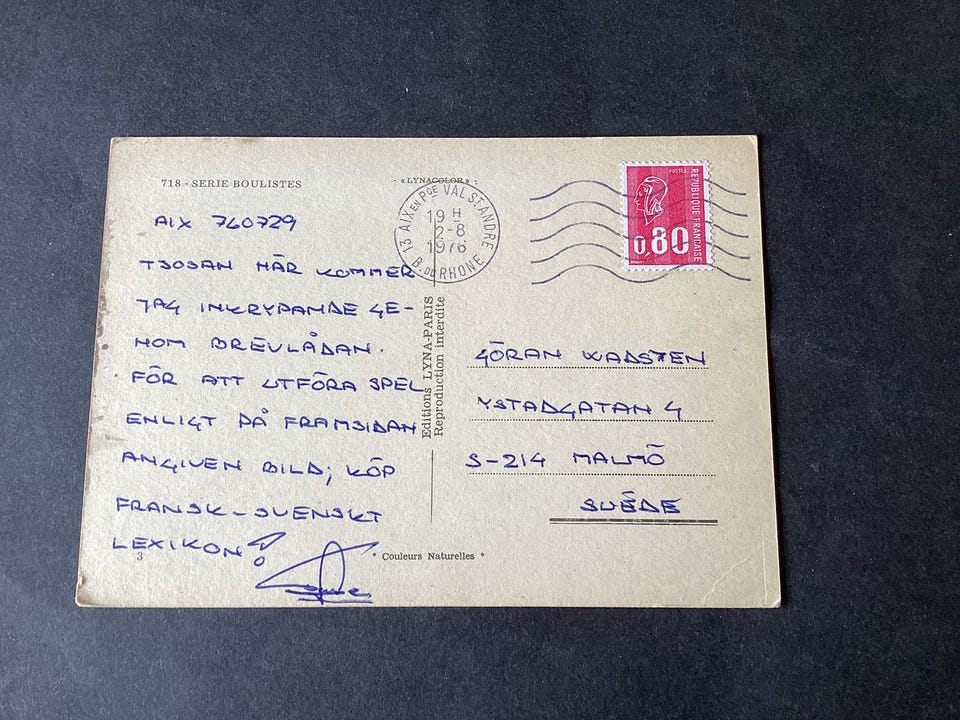 718 - SERIE BOULISTES
«LYNACOLOR»
AIX 760729
TJOSAN HÄR KOMMER
JAG INKRYPANDE GE-
NOM BREVLÅDAN.
FÖR ATT UTFÖRA SPEL
ENLIGT PÅ FRAMSIDAN
ANGIVEN BILD; KÖP
FRANSK-SVENSKT
LEXIKON!
3
Editions LYNA-PARIS
Reproduction interdite
* Couleurs Naturelles *
13 AIX EN PCE VAL ST ANDRE
19 H
2-8
1976
B. DU RHONE
POSTES
REPUBLIQUE FRANÇAISE
0,80
GÖRAN WADSTEN
YSTADGATAN 4
S-214 MALMÖ
SUÈDE